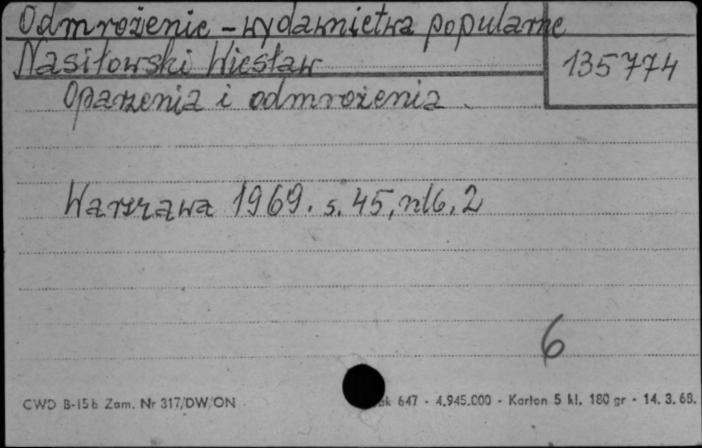 Odmrożenie - wydawnictwa popularne
Nasiłowski Wiesław
135774
Oparzenia i odmrożenia.
Warszawa 1969. s. 45, nlb. 2
6
CWD B-15b Zam. Nr 317/DW/ON
647 - 4.945.000 - Karton 5 kl. 180 gr - 14. 3. 68.